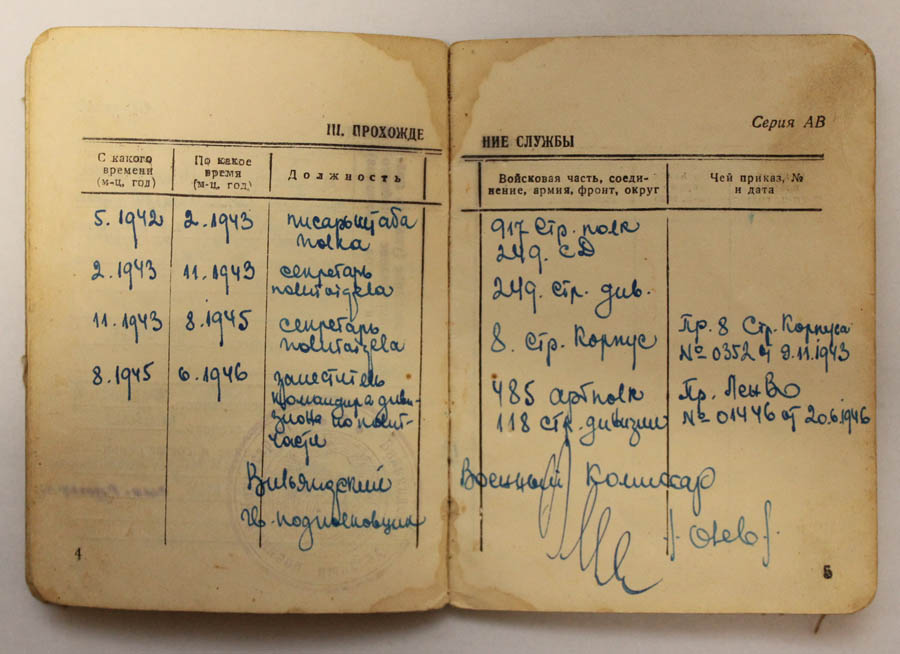 III. ПРОХОЖДЕ
С какого времени (м-ц, год)
По какое время (м-ц, год)
Должность
5. 1942
2. 1943
писарь штаба
полка
2. 1943
11. 1943
секретарь
политотдела
11. 1943
8. 1945
секретарь
политотдела
8. 1945
6. 1946
заместитель
командира диви-
зиона по полит-
части
Вильяндский
гв. подполковник
4
Серия АВ
НИЕ СЛУЖБЫ
Войсковая часть, соеди-
нение, армия, фронт, округ
Чей приказ, №
и дата
917 Стр. полк
249. СД
249. стр. див.
8. стр. Корпус
Пр. 8 Стр. Корпуса
№ 0352 от 9.11.1943
485 артполк
118 стр. дивизии
Пр. ЛенВО
№ 01446 от 20.6.1946
Военный Комиссар
5